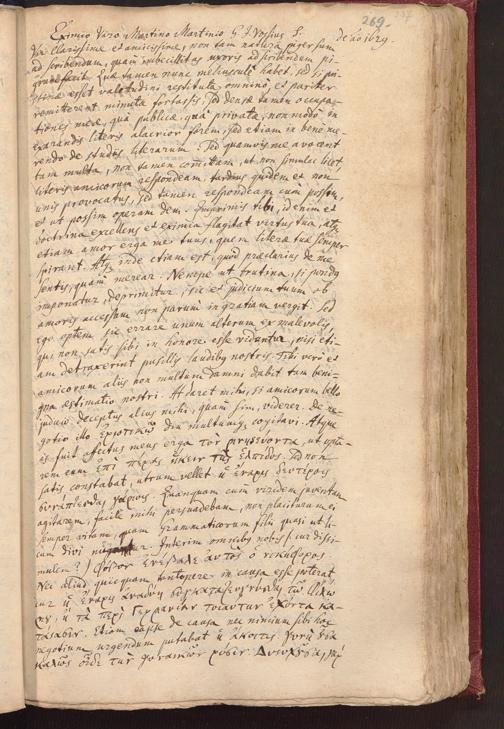 269.
Eximio Viro Martino Martinio G. J. Vossius S.
de ao 1629.
Vir clarissime et amicissime, non tam natura piger sum
ad scribendum, quam imbecillitas uxoris ad scribendum pi-
grum fecit. Quae tamen nunc meliuscule habet. Sed si pri-
stinae esset valetudini restituta omnino, et pariter
remitterent nimia fortassis, sed densae tamen occupa-
tiones meae, quà publicae, quà privatae, non modò in
exarandis literis alacrior forem, sed etiam in bene me-
rendo de studiis literarum. Sed quamvis me avocent
tam multa, non tamen committam, ut non simul
literis amicorum respondeam, tardius quidem et non
unis provocatus, sed tamen respondeam cum possem,
et ut possim operam dem. Imprimis tibi, id enim et
doctrina excellens et eximia flagitat virtus tua, atq
etiam amor erga me tuus, quem literae tuae semper
spirant. Atq inde etiam est, quod praeclarius de me
sentis, quam merear. Nempe ut trutina, si pondus
imponatur, deprimitur, sic et judicium tuum ob
amoris accessum non parum in gratiam vergit. Sed
ego optem sic errare unum alterum ex malevolis,
qui non satis sibi in honore esse videantur, nisi eti-
am detraxerint pusillis laudibus nostris. Tibi vero et
amicorum aliis non multum damni dabit tam beni-
gna aestimatio nostri. At daret mihi, si amicorum bello
judicio deceptus alius mihi, quam sim, viderer. De ne-
gotio illo diu multumq cogitavi. Atque
is fuit affectus meus erga τὸν μνηστεύοντα, ut opta-
rem eum ἐπὶ πέρας ἥκειν τῆς ἐλπίδος. Sed non
satis constabat, utrum vellet
Quanquam cum viridem juventam
agitarem, facile mihi persuadebam, non placituram ei
semper vitam, quam Grammaticorum filii quasi
cum divi Interim omnibus nobis (cur dissi-
mulem?) φόβον ἐνέβαλε αὐτὸς ὁ
Nec aliud quicquam tantopere in causa esse poterat
cur
τὰ περὶ Γερμανίαν τοιαῦτα ἔχοντα κα-
Etiam eapse de causa ne nimium sibi hoc
negotium urgendum putabat ἡ ἄκοιτις
καλῶς οἶδε τὴν